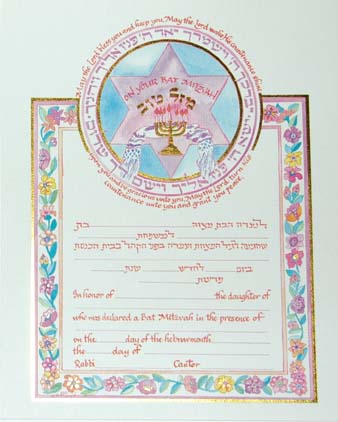 May the Lord bless you and keep you, May the Lord make his countenance shine
upon you, and be gracious unto you, May the Lord turn his
countenance unto you and grant you peace.
יברכך ה' וישמרך יאר ה' פניו אליך ויחנך ישא ה' פניו אליך וישם לך שלום
ON YOUR BAT MITZVAH!
מזל טוב
לנערה הבת מצוה בת
למשפחת
שהגיעה לגיל המצוות ועמדה בפני הקהל בבית הכנסת
ביום לחדש שנת
פרשת
In honor of the daughter of
who was declared a Bat Mitzvah in the presence of
on the day of the hebrew month
the day of
Rabbi Cantor